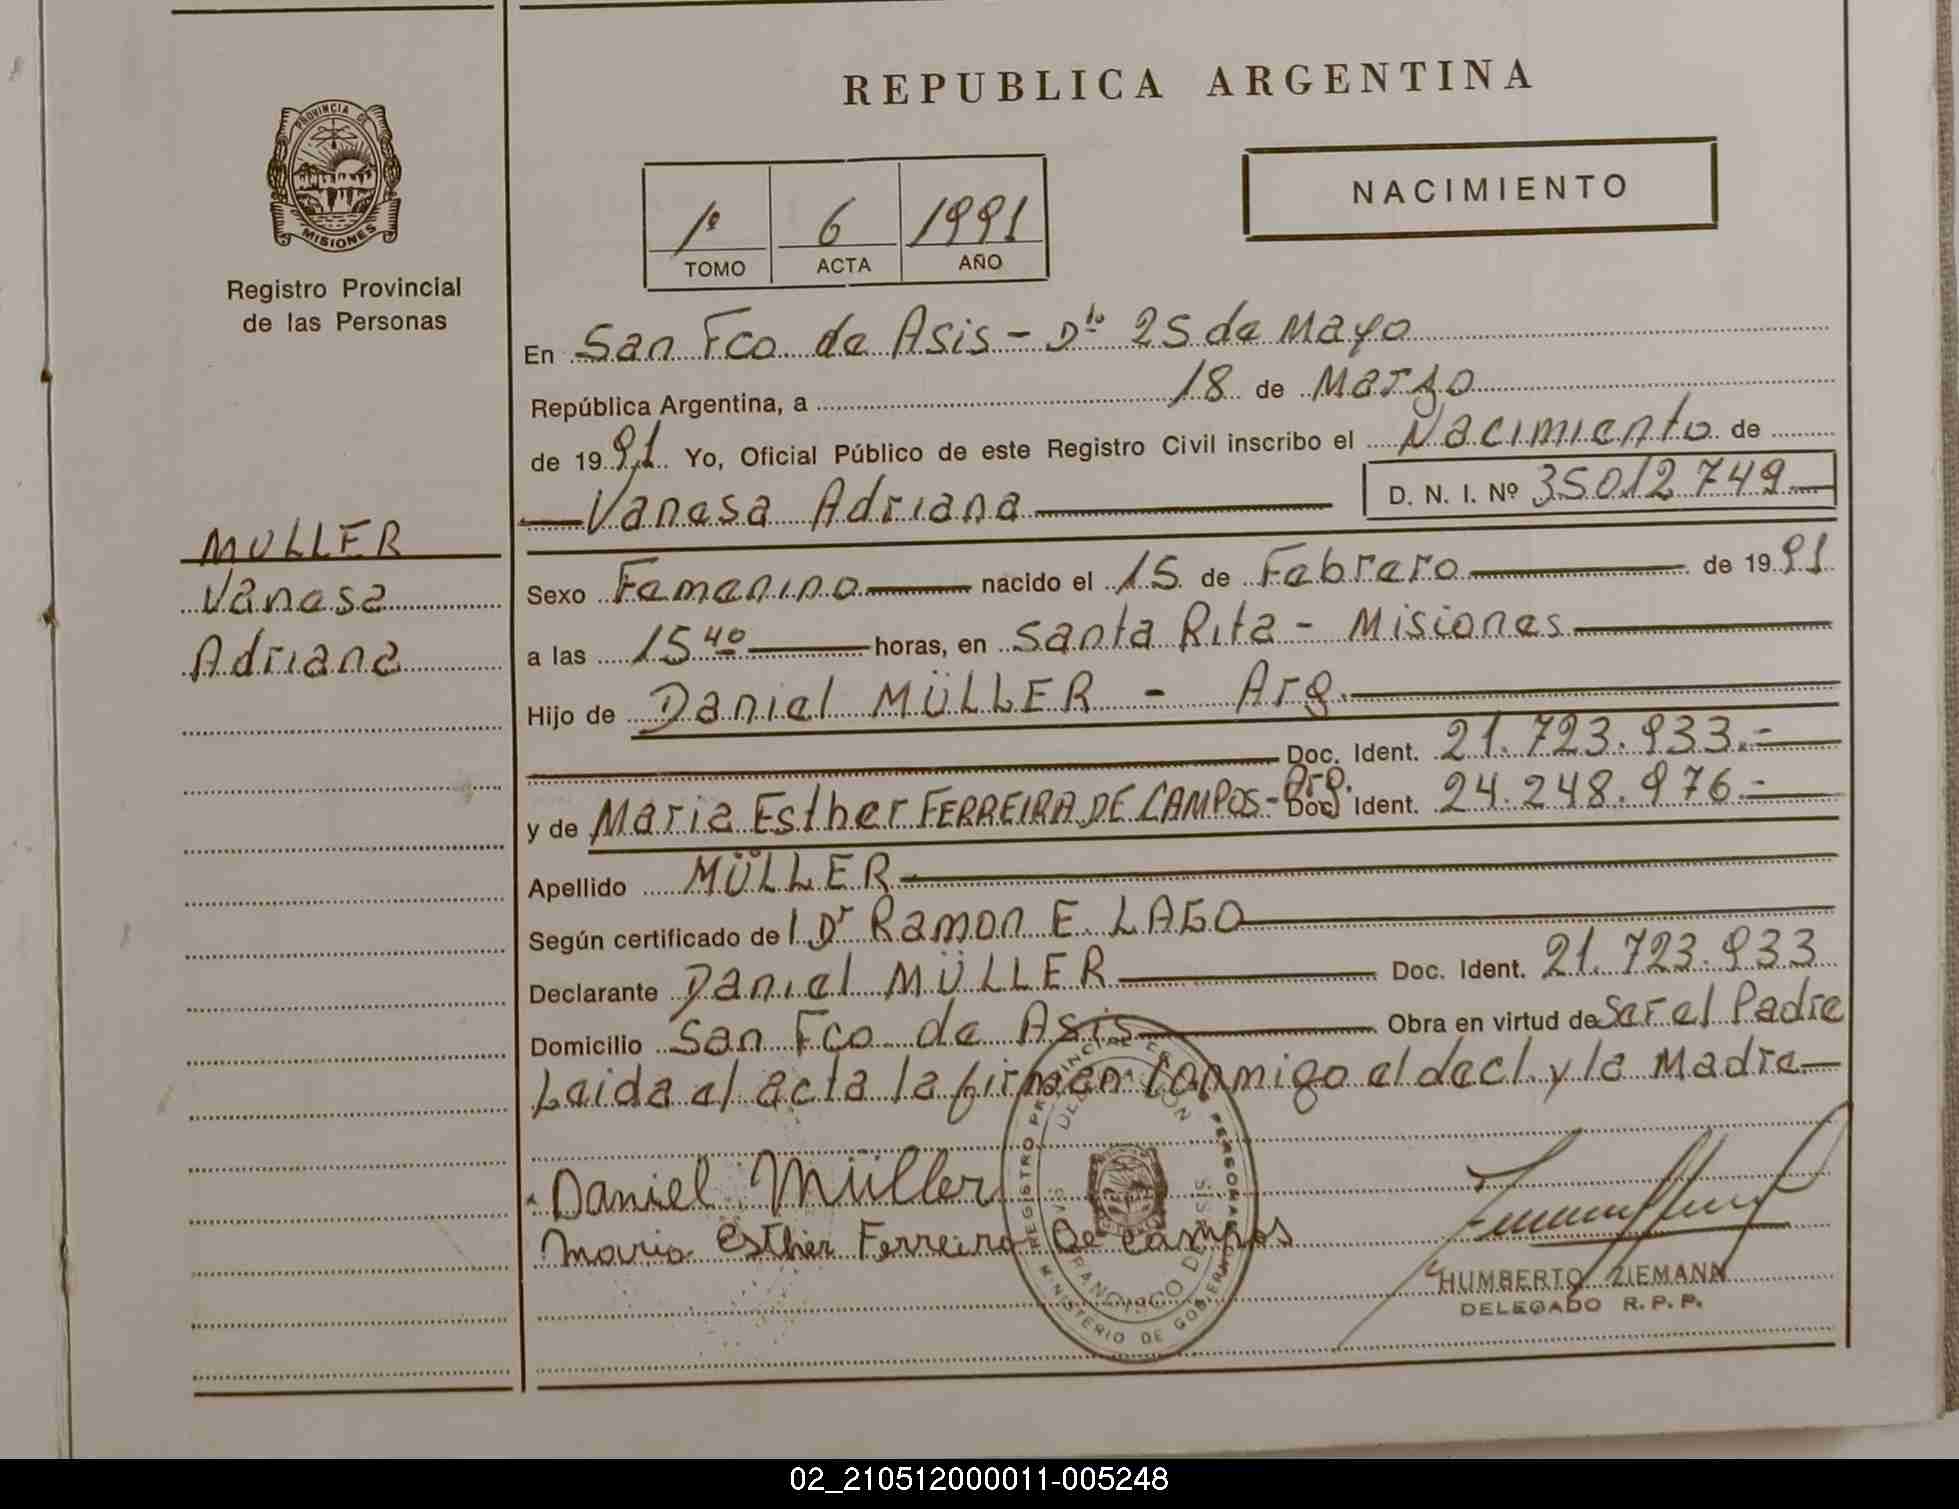 REPUBLICA ARGENTINA
PROVINCIA DE
MISIONES
Registro Provincial
de las Personas
NACIMIENTO
1º 6 1991
TOMO ACTA AÑO
En San Fco de Asis - Dto 25 de Mayo
República Argentina, a 18 de Marzo
de 1991 Yo, Oficial Público de este Registro Civil inscribo el Nacimiento de
Vanesa Adriana D. N. I. Nº 35012749
MULLER
Vanesa
Adriana
Sexo Femenino nacido el 15 de Febrero de 1991
a las 15 40 horas, en Santa Rita - Misiones
Hijo de Daniel MÜLLER - Arg.
Doc. Ident. 21.723.933.-
y de Maria Esther FERREIRA DE CAMPOS - Arg. Doc. Ident. 24.248.976.-
Apellido MÜLLER
Según certificado de l Dr Ramon E. LAGO
Declarante Daniel MÜLLER Doc. Ident. 21.723.933
Domicilio San Fco de Asis Obra en virtud de Ser el Padre
Leida el acta la firman conmigo el decl. y la Madre
Daniel Müller
Maria Esther Ferreira De Campos
REGISTRO PROVINCIAL DE PERSONAS
MINISTERIO DE GOBIERNO
HUMBERTO ZIEMANN
DELEGADO R. P. P.
02_210512000011-005248